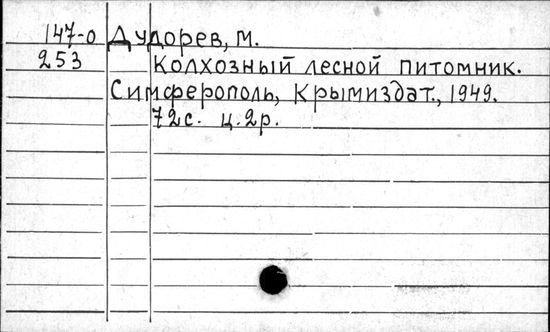 147-0 Дудорев, М.
253 Колхозный лесной питомник.
Симферополь, Крымиздат., 1949.
72с. ц. 2р.